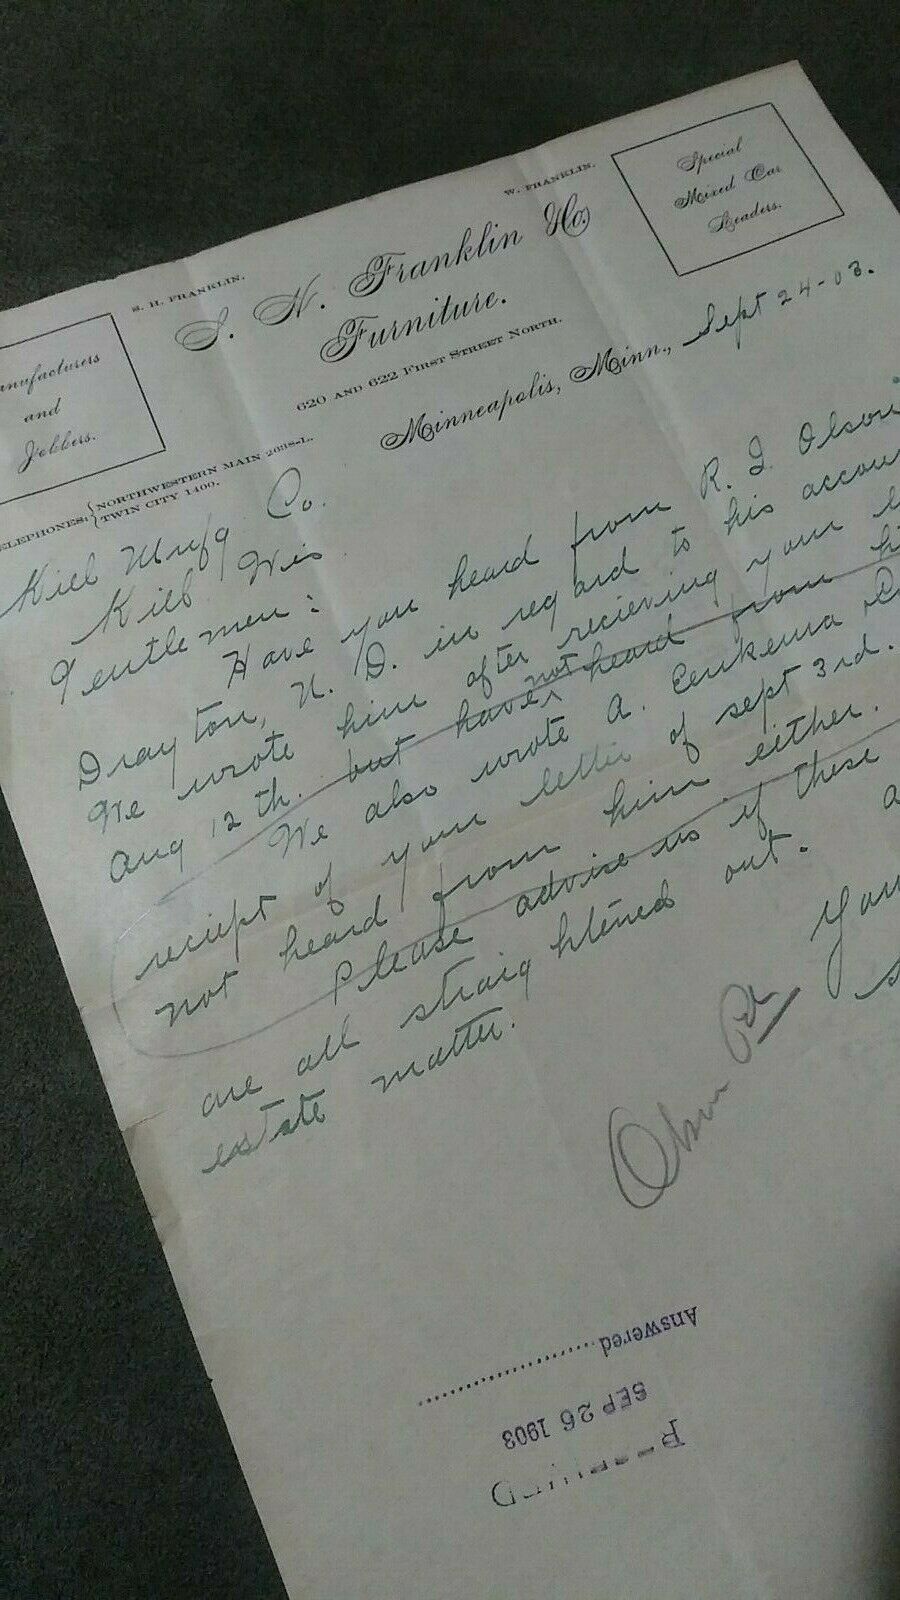 S. H. FRANKLIN.
W. FRANKLIN.
Manufacturers
and
Jobbers.
Franklin Co
Furniture.
Special
Mixed Car
Leaders.
620 AND 622 FIRST STREET NORTH.
TELEPHONES: NORTHWESTERN MAIN 2698-L.
TWIN CITY 1400.
Minneapolis, Minn., Sept 24-03.
Kiel Mnfg. Co.
Kiel Wis
Gentlemen:
Have you heard from R. I. Olson
Drayton, N. D. in regard to his
We wrote him after recieving your
Aug 12th. but have not heard from
We also wrote A.
reciept of your letter of sept 3rd.
not heard from him either.
Please advise us if these
are all straightened out.
estate matter.
Olson Pd
Answered
SEP 26 1903